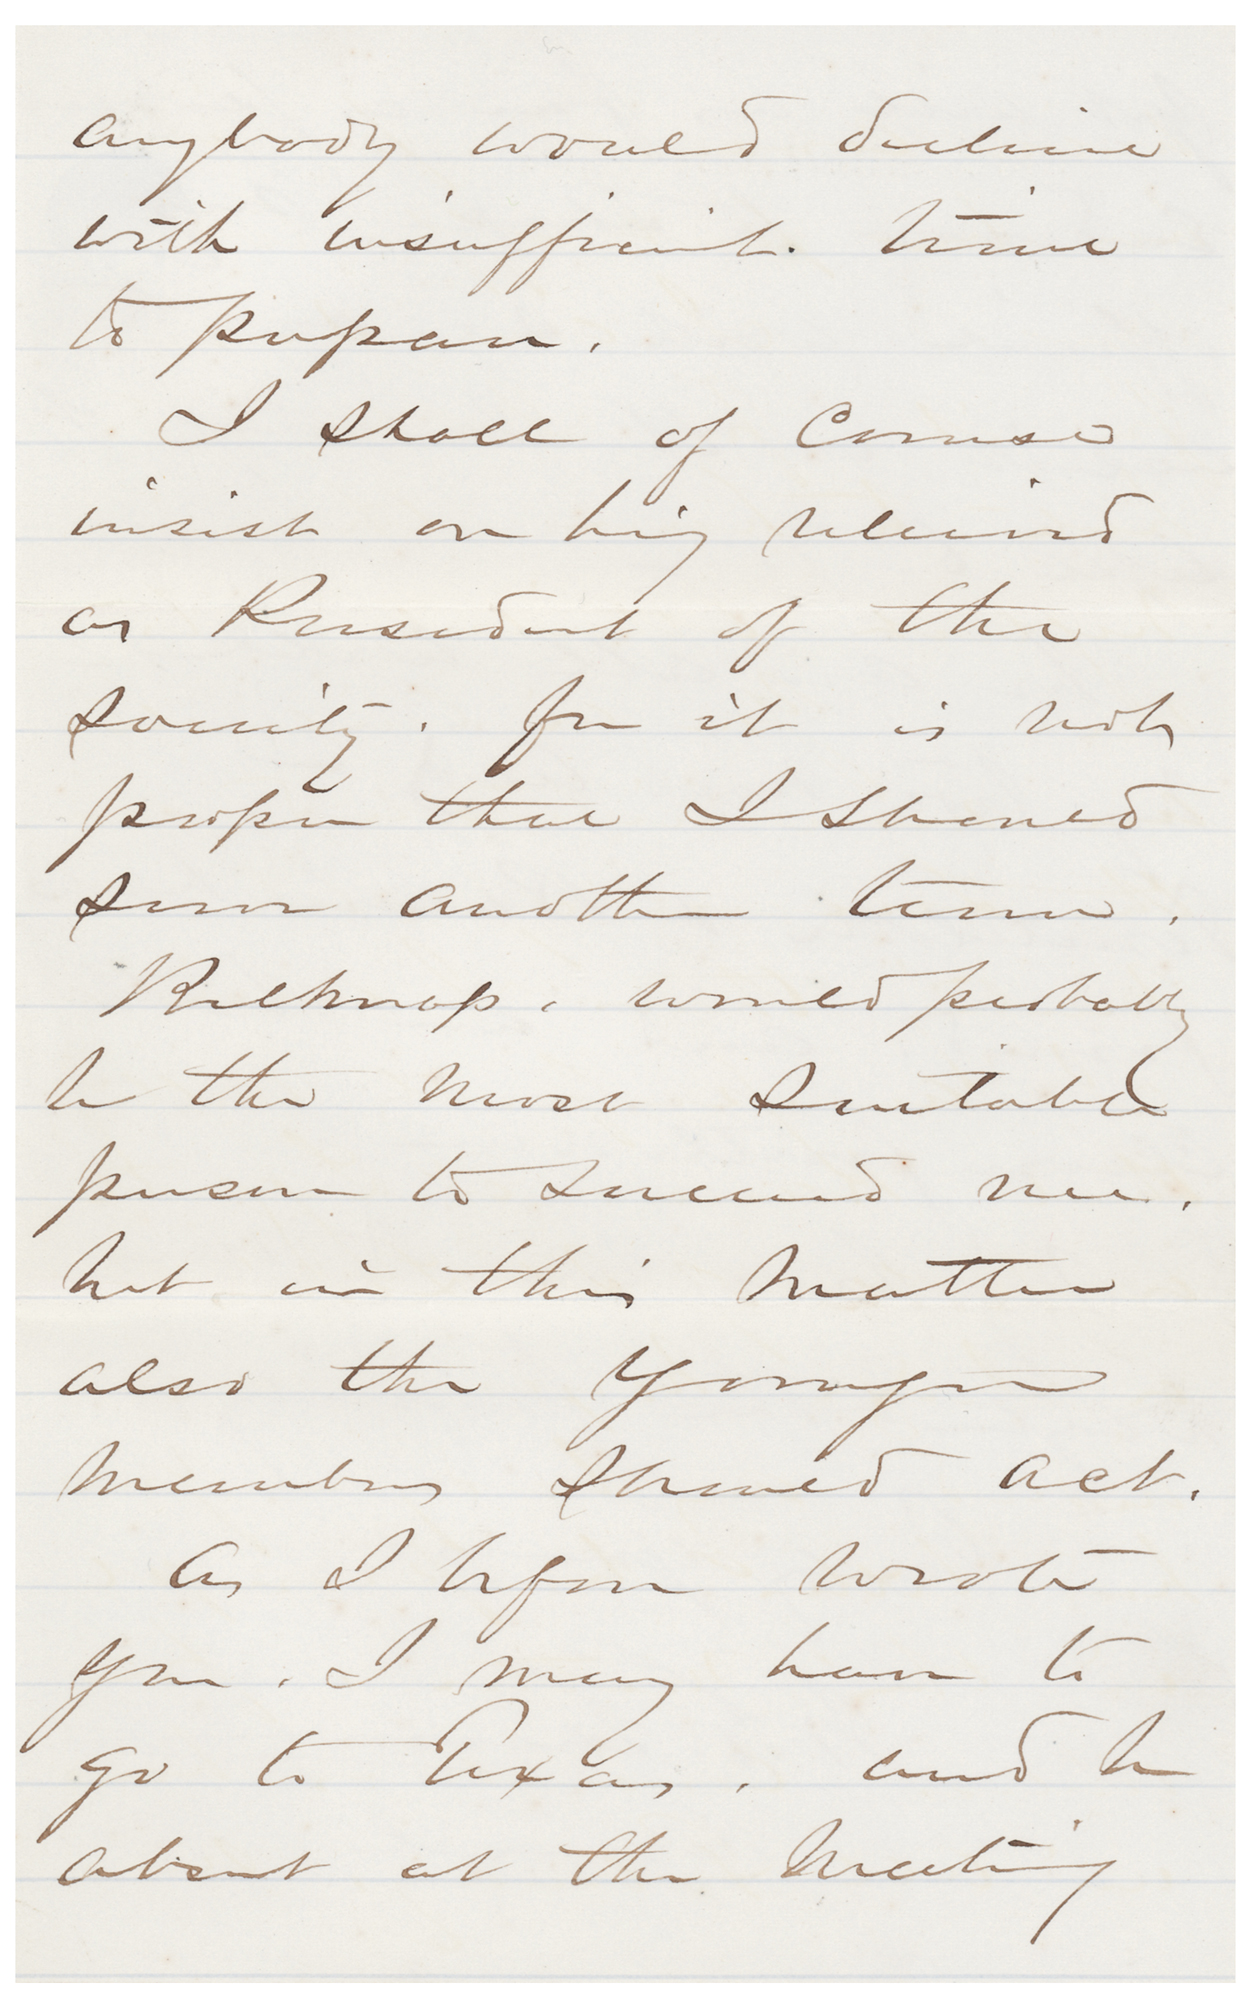 anybody would decline
with insufficient time
to prepare.
I shall of course
insist on being relieved
as President of the
Society. for it is not
proper that I should
serve another term.
Belknap, would probably
be the most suitable
person to succeed me,
but in this matter
also the younger
members should act.
As I before wrote
you. I may have to
go to Texas, and be
absent at the meeting